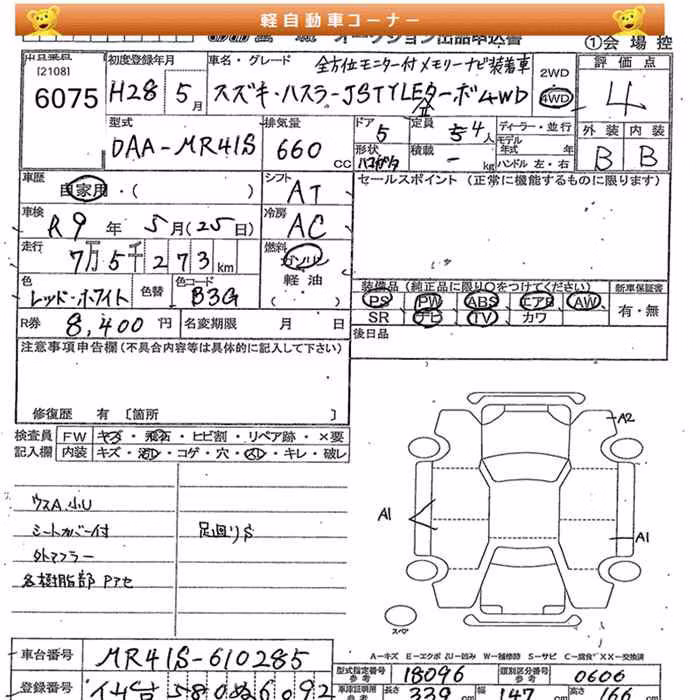 軽自動車コーナー
オークション出品申込書
①会場控
出品番号
[2108]
6075
初度登録年月
H28 5月
車名・グレード
全方位モニター付メモリーナビ装着車
スズキ・ハスラーJSTYLEⅡターボ4WD
2WD
4WD
評価点
4
外装 内装
B B
型式
DAA-MR41S
排気量
660 CC
ドア
5
定員
4人
形状
積載
- kg
ディーラー・並行
モデル年式 年
ハンドル 左・右
車歴
自家用・( )
シフト
AT
セールスポイント (正常に機能するものに限ります)
車検
R9年5月(25日)
冷房
AC
走行
7万5千273km
燃料
ガソリン
軽油
( )
色
レッド・ホワイト
色替
色コード
B3G
装備品 (純正品に限り○をつけてください)
新車保証書
PS PW ABS エアB AW
有・無
SR ナビ TV カワ
R券
8,400円
名変期限 月 日
後日品
注意事項申告欄 (不具合内容等は具体的に記入して下さい)
修復歴 有 〔箇所 〕
検査員記入欄
FW キズ・飛石・ヒビ割・リペア跡・×要
内装 キズ・汚レ・コゲ・穴・スレ・キレ・破レ
ウスA 小U
シートカバー付
足廻りS
外マフラー
各樹脂部 Pアセ
A2
A1
A1
スペア
A-キズ E-エクボ U-凹み W-補修跡 S-サビ C-腐食 XX-交換済
車台番号
MR41S-610285
型式指定番号 参考
18096
類別区分番号 参考
0606
登録番号
580 ぬ 6092
車庫証明用 参考
長さ 339 cm
幅 147 cm
高さ 166 cm